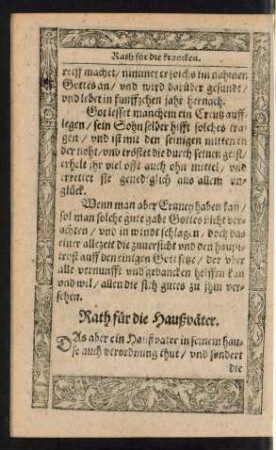 Rath für die krancken.
reiff machet / nimmet er solchs im nahmen
Gottes an / vnd wird darüber gesundt /
vnd lebet in funffzehen jahr hernach.
Got lesset manchem ein Creutz auff-
legen / sein Sohn selber hilfft solches tra-
gen / vnd ist mit den seinigen mitten in
der noht / vnd tröstet die durch seinen geist /
erhelt ihr viel offt auch ohn mittel / vnd
errettet sie genediglich aus allem vn-
glück.
Wenn man aber Ertzney haben kan /
sol man solche gute gabe Gottes nicht ver-
achten / vnd in windt schlagen / doch das
einer allezeit die zuuersicht vnd den haupt-
trost auff den einigen Gott setze / der vber
alle vernunfft vnd gedancken helffen kan
vnd wil / allen die sich gutes zu jhm ver-
sehen.
Rath für die Haußväter.
DAs aber ein Haußvater in seinem hau-
se auch verordnung thut / vnd sondert
die